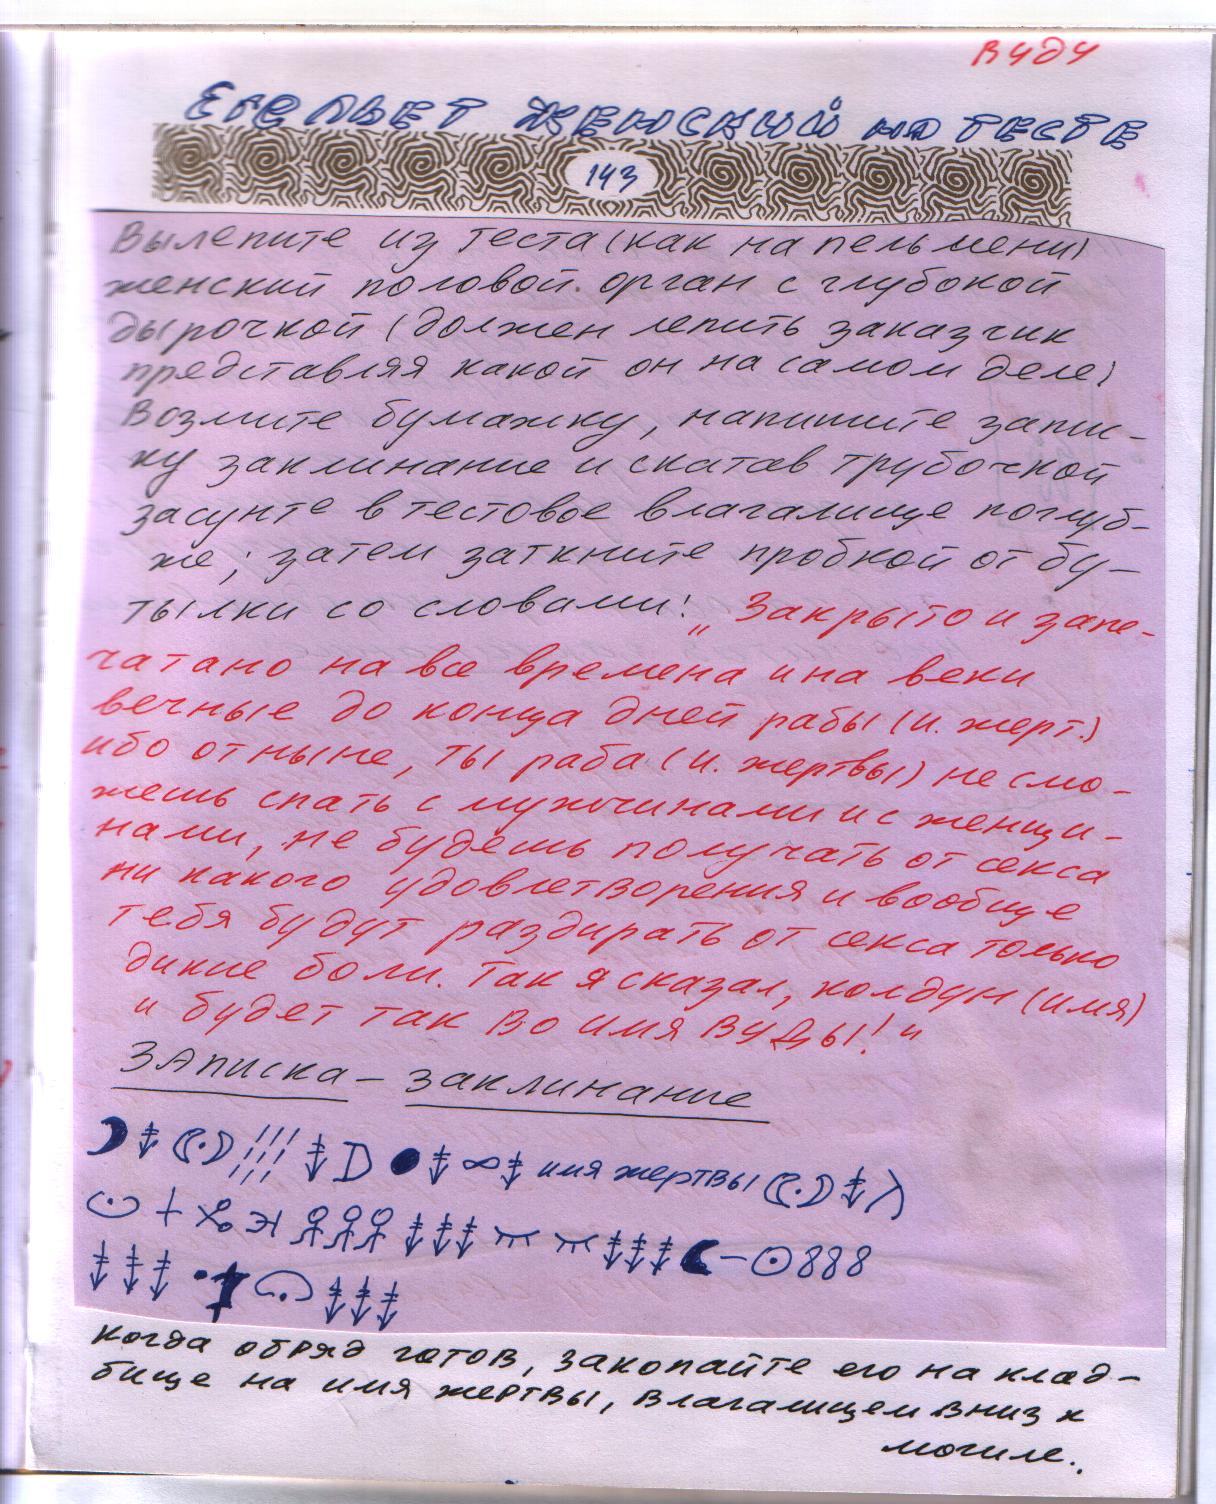 ВУДУ
ЕГЕЛЬЕТ ЖЕНСКИЙ НА ТЕСТЕ
143
Вылепите из теста (как на пельмени)
женский половой. орган с глубокой
дырочкой (должен лепить заказчик
представляя какой он на самом деле)
Возмите бумажку, напишите запи-
ку заклинание и скатав трубочкой
засунте в тестовое влагалище поглуб-
же; затем заткните пробкой от бу-
тылки со словами: „Закрыто и запе-
чатано на все времена и на веки
вечные до конца дней рабы (и. жерт.)
ибо отныне, ты раба (и. жертвы) не смо-
жешь спать с мужчинами и с женщи-
нами, не будешь получать от секса
ни какого удовлетворения и вообще
тебя будут раздирать от секса только
дикие боли. Так я сказал, колдун (имя)
и будет так во имя ВУДЫ!"
Записка – заклинание
имя жертвы
888
когда обряд готов, закопайте его на клад-
бище на имя жертвы, влагалищем вниз к
могиле.